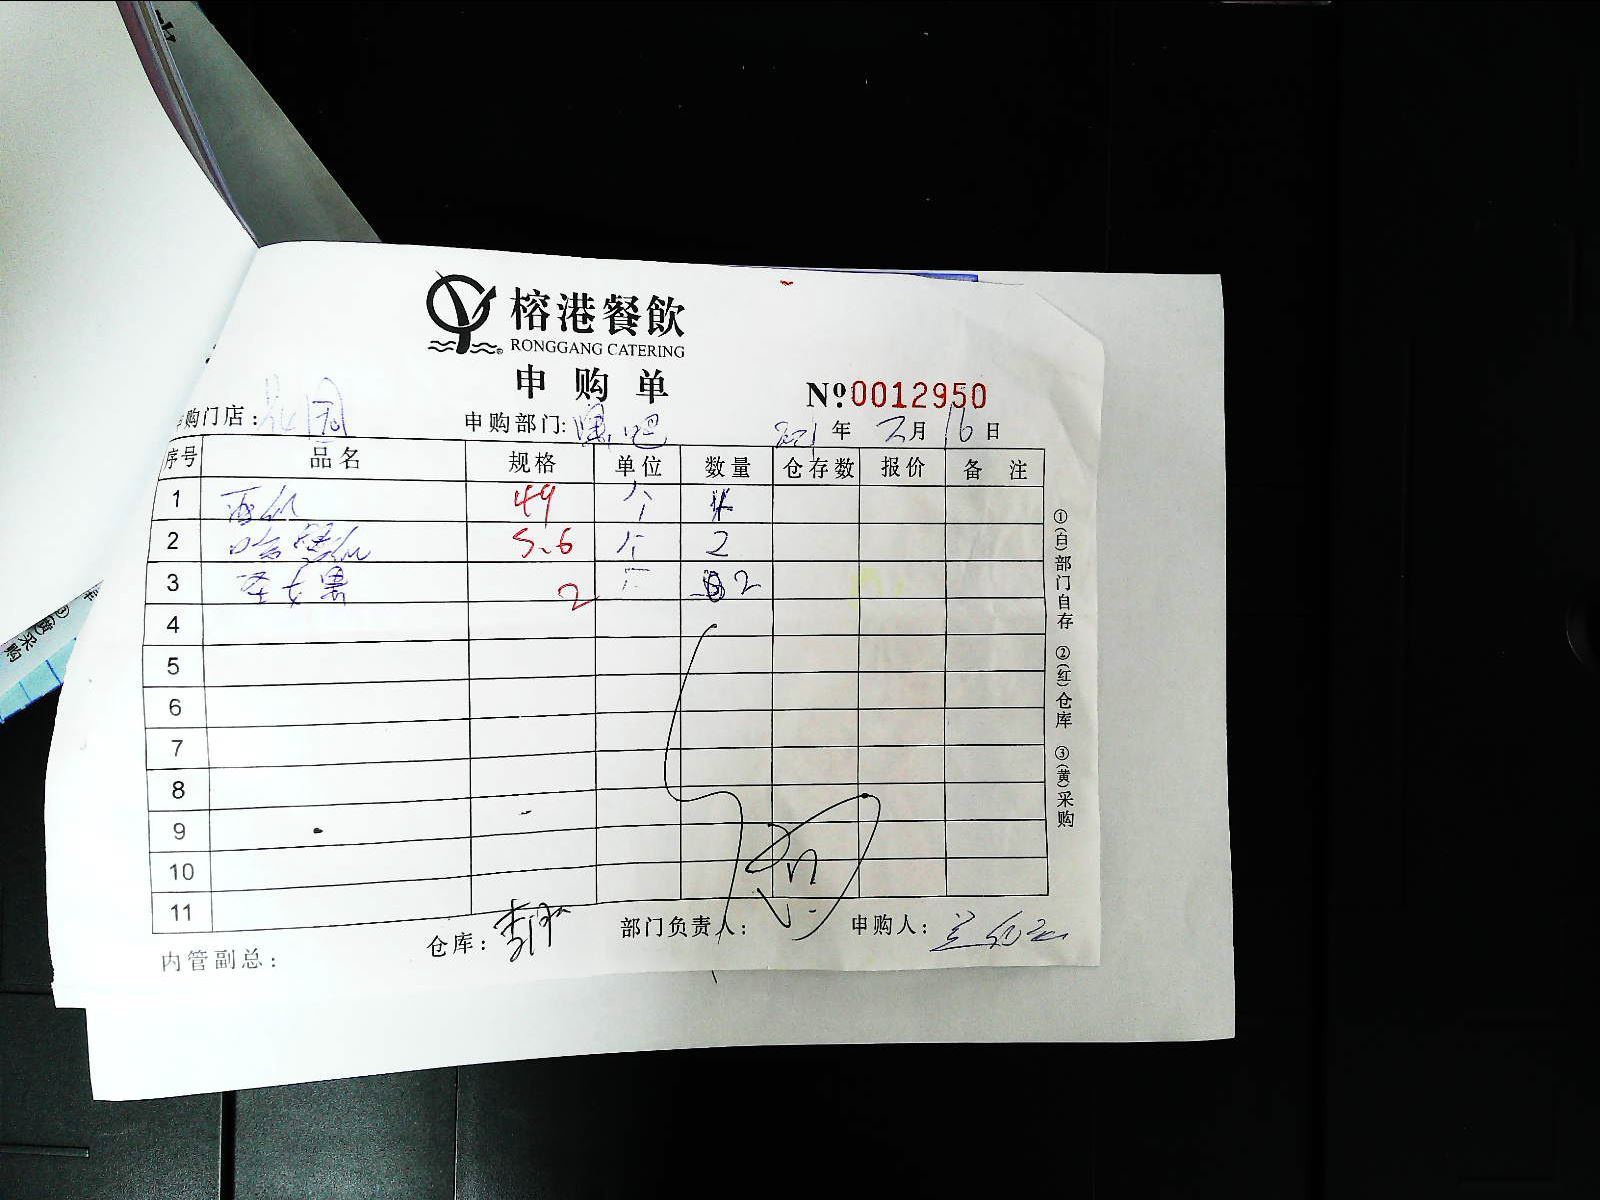 榕港餐飲
RONGGANG CATERING
申购单
№0012950
购门店: 花园 申购部门: 水吧 2021年2月16日
序号 品名 规格 单位 数量 仓存数 报价 备注
1 西瓜 49 个
2 哈密瓜 5.6 个 2
3 圣女果 2 斤 2
4
5
6
7
8
9
10
11
内管副总: 仓库: 部门负责人: 申购人:
①(白)部门自存 ②(红)仓库 ③(黄)采购
采购